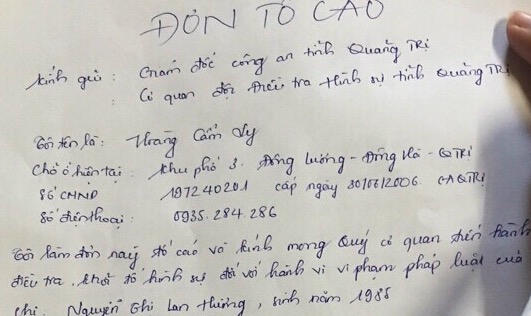 ĐƠN TỐ CÁO
Kính gửi : Giám đốc công an tỉnh Quảng Trị
: Cơ quan đội điều tra hình sự tỉnh Quảng Trị
Tôi tên là : Hoàng Cẩm Vy
Chỗ ở hiện tại : khu phố 3. Đông Lương - Đông Hà - QTRỊ
Số CMND 197240201 cấp ngày 30/06/2006. CAQTRỊ
Số điện thoại : 0935.284.286
Tôi làm đơn này tố cáo và kính mong Quý cơ quan tiến hành
điều tra, khởi tố hình sự đối với hành vi vi phạm pháp luật của
chị. Nguyễn Thị Lan Hương, sinh năm 1988